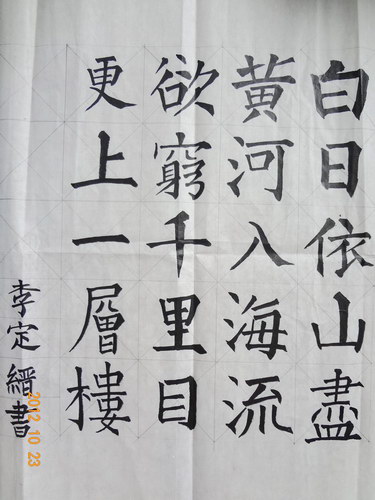 白日依山盡
黃河入海流
欲窮千里目
更上一層樓
李定縉書
2012 10 23